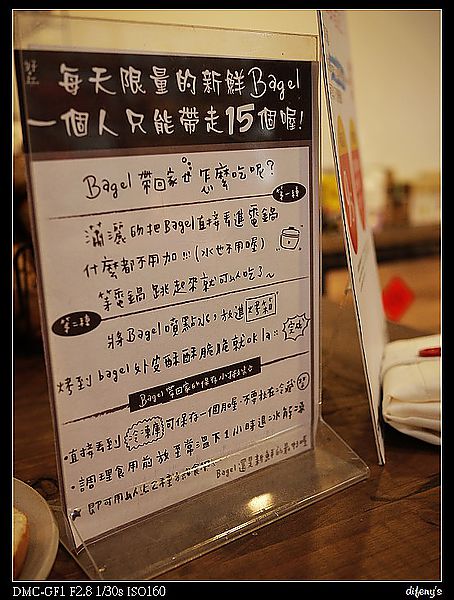 好丘
每天限量的新鮮Bagel
一個人只能帶走15個喔!
Bagel 帶回家也怎麼吃呢?
第一種
瀟灑的把Bagel直接丟進電鍋
什麼都不用加!!!(水也不用喔)
等電鍋跳起來就可以吃了~
第二種
將Bagel噴點水,放進烤箱
烤到bagel外皮酥酥脆脆就ok la!!
完成
Bagel 帶回家的保存小
•直接丟到冷凍庫可保存一個月喔.不要放在冷藏
•調理食用前放至常溫下1小時退冰解凍
即可用以上2種方式食用
Bagel還是新鮮的最好喔
DMC-GF1 F2.8 1/30s ISO160
difeny's